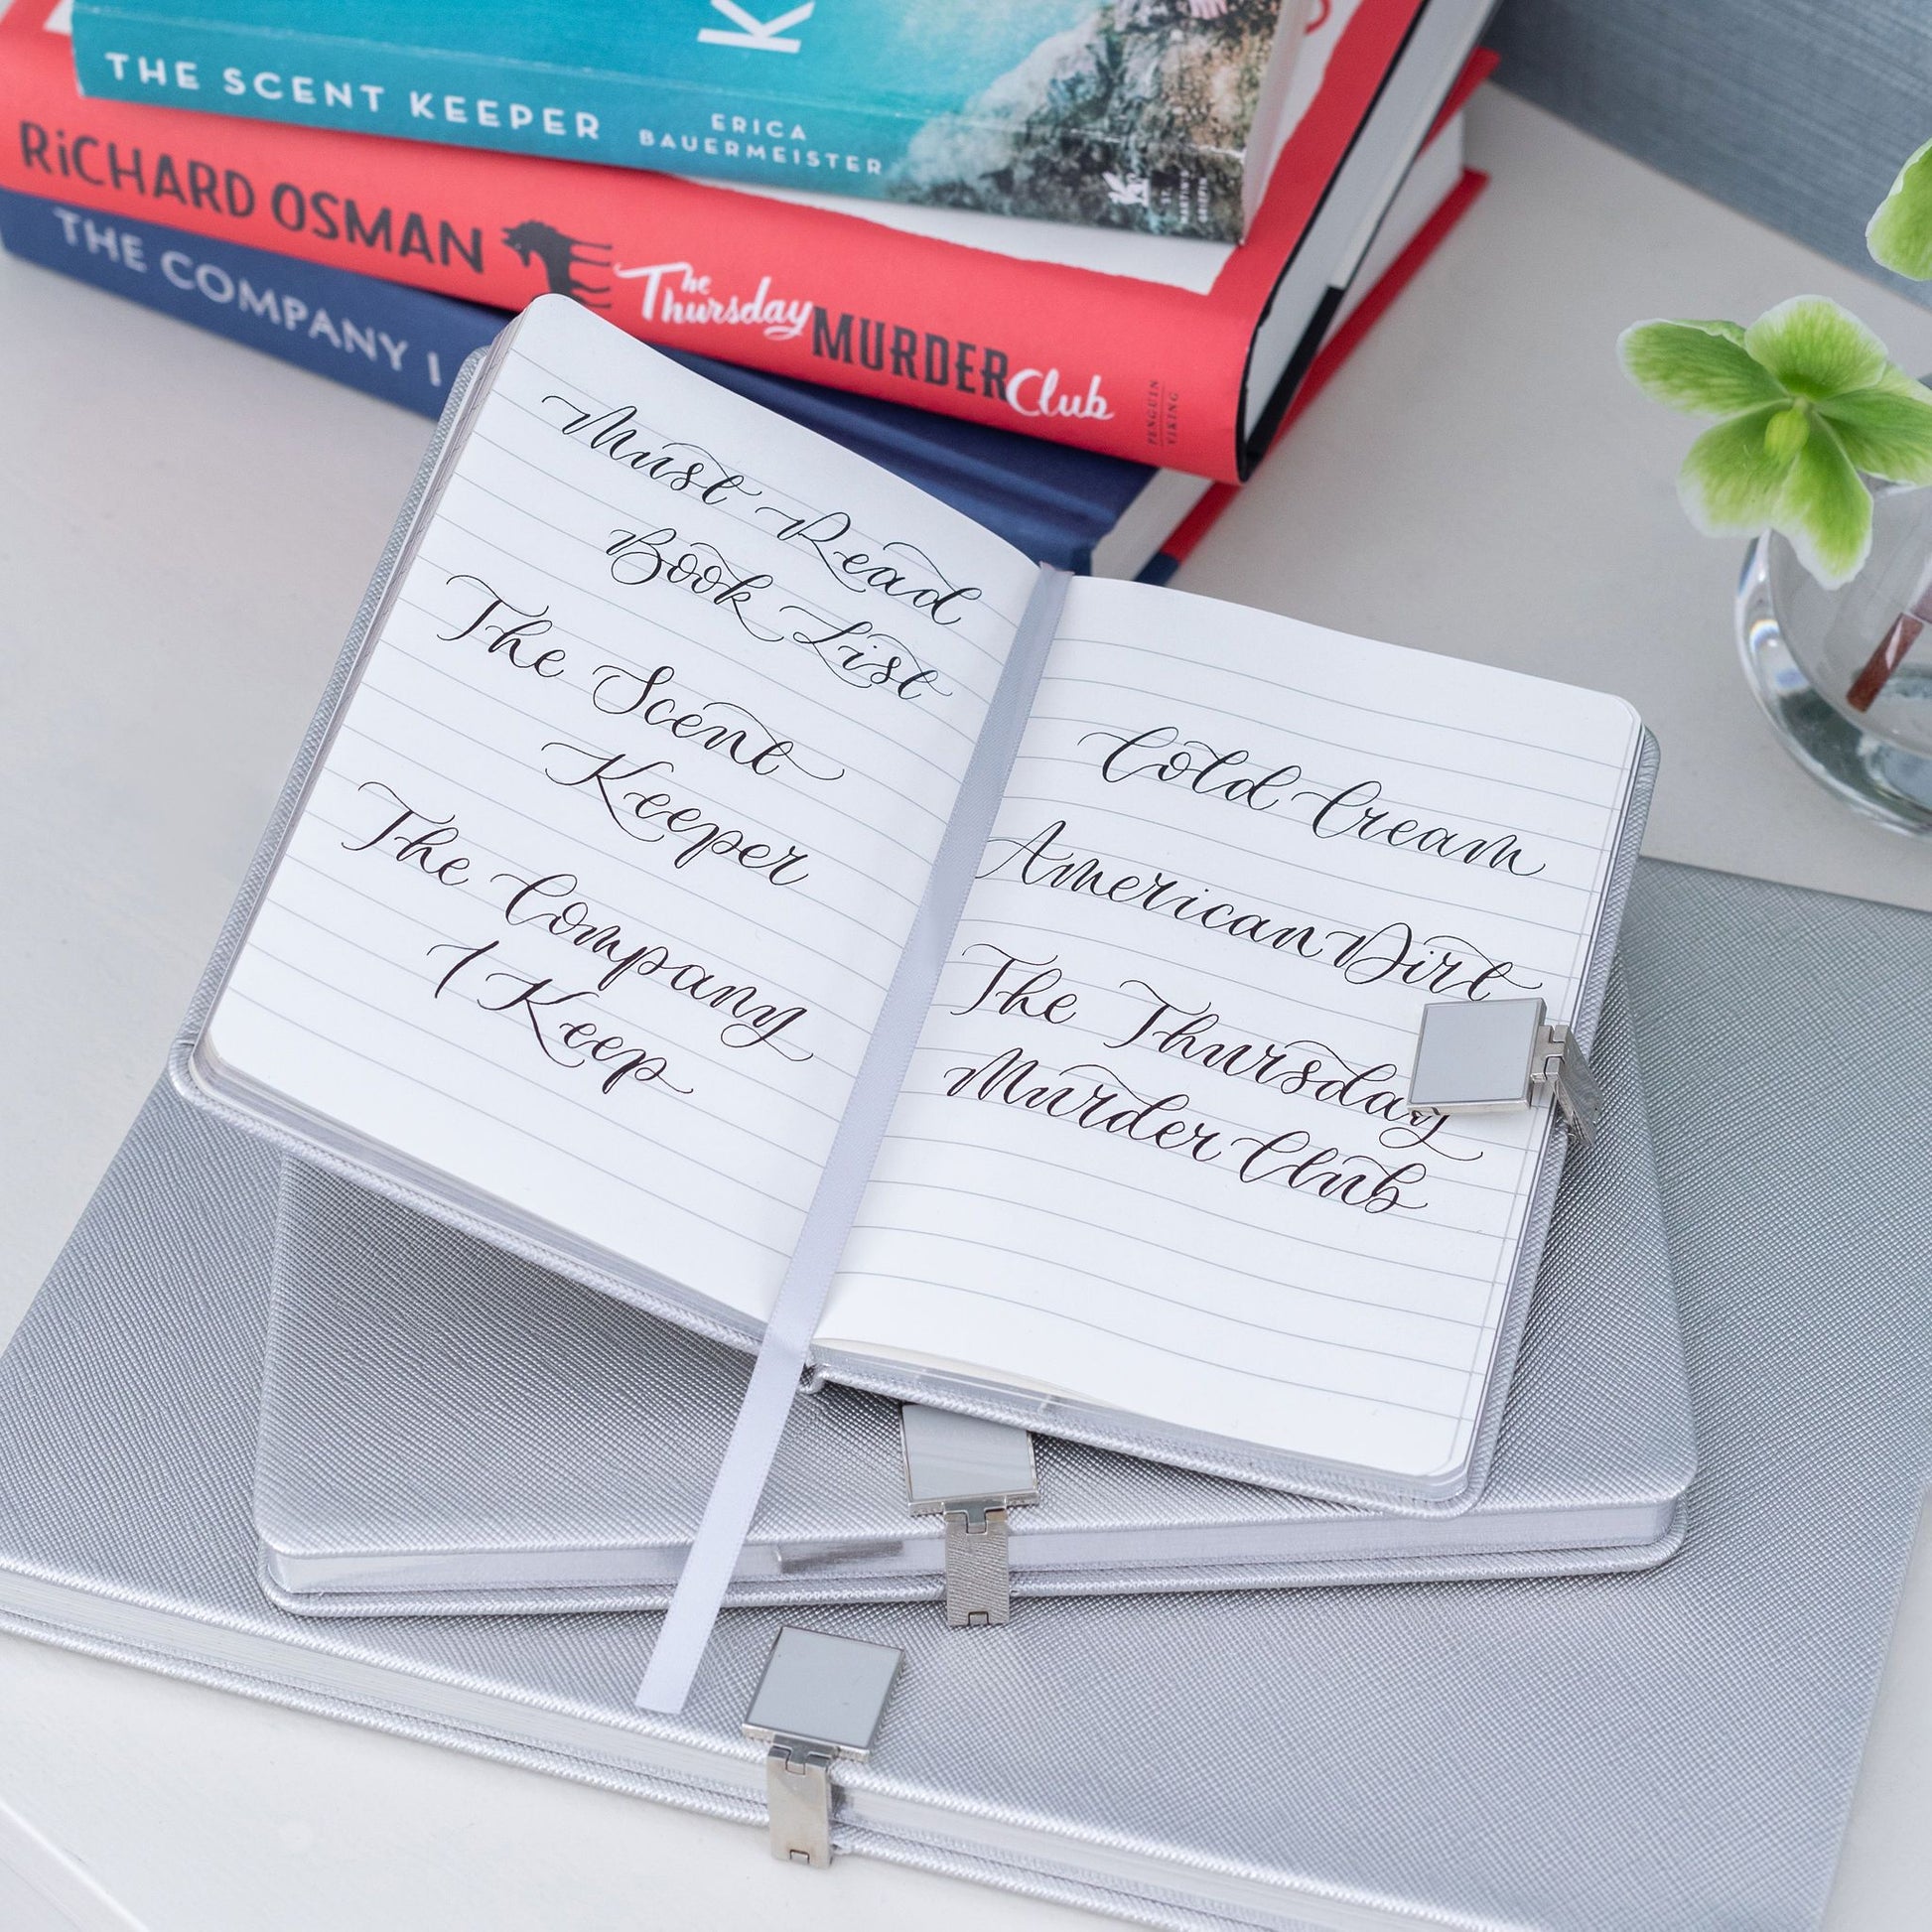 K
THE SCENT KEEPER
ERICA
BAUERMEISTER
RICHARD OSMAN
The Thursday MURDER Club
PENGUIN
VIKING
THE COMPANY I
Must Read
Book List
The Scent
Keeper
The Company
I Keep
Cold Cream
American Dirt
The Thursday
Murder Club